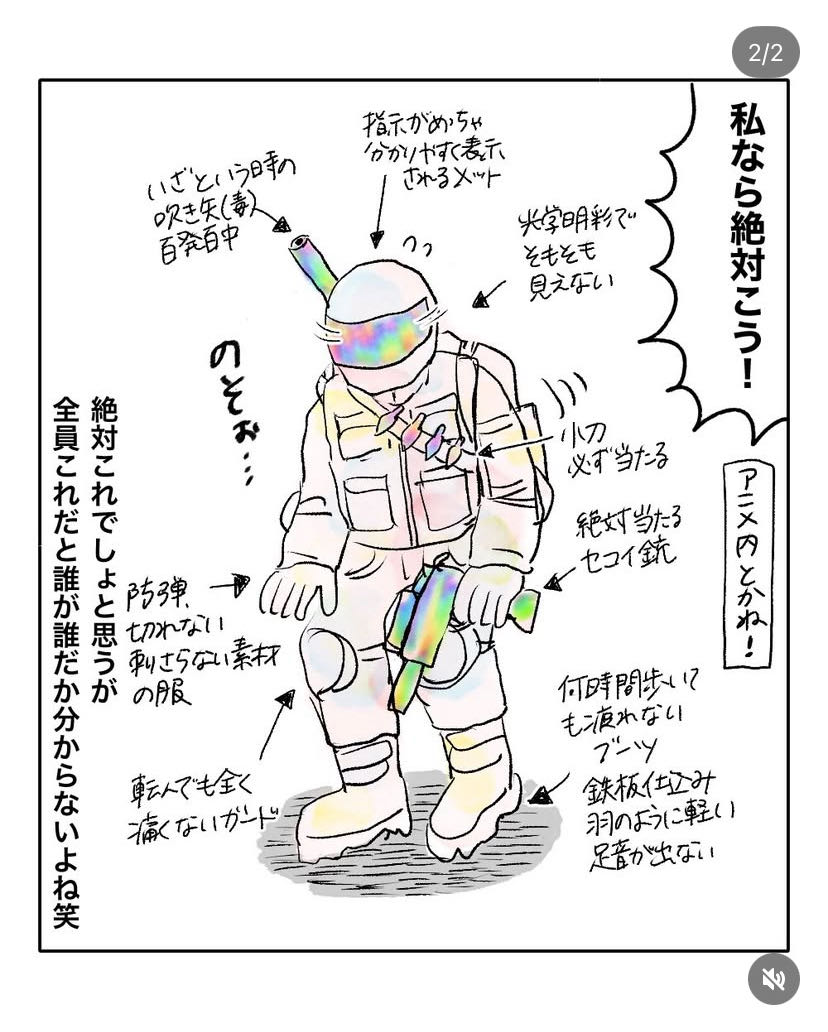 2/2
私なら絶対こう！
アニメ内とかね！
指示がめっちゃ
分かりやすく表示
されるメット
いざという時の
吹き矢(毒)
百発百中
光学明彩で
そもそも
見えない
のそぉ…
小刀
必ず当たる
絶対当たる
セコイ銃
防弾、
切れない
刺さらない素材
の服
何時間歩いて
も疲れない
ブーツ
鉄板仕込み
羽のように軽い
足音が出ない
転んでも全く
痛くないガード
絶対これでしょと思うが
全員これだと誰が誰だか分からないよね笑